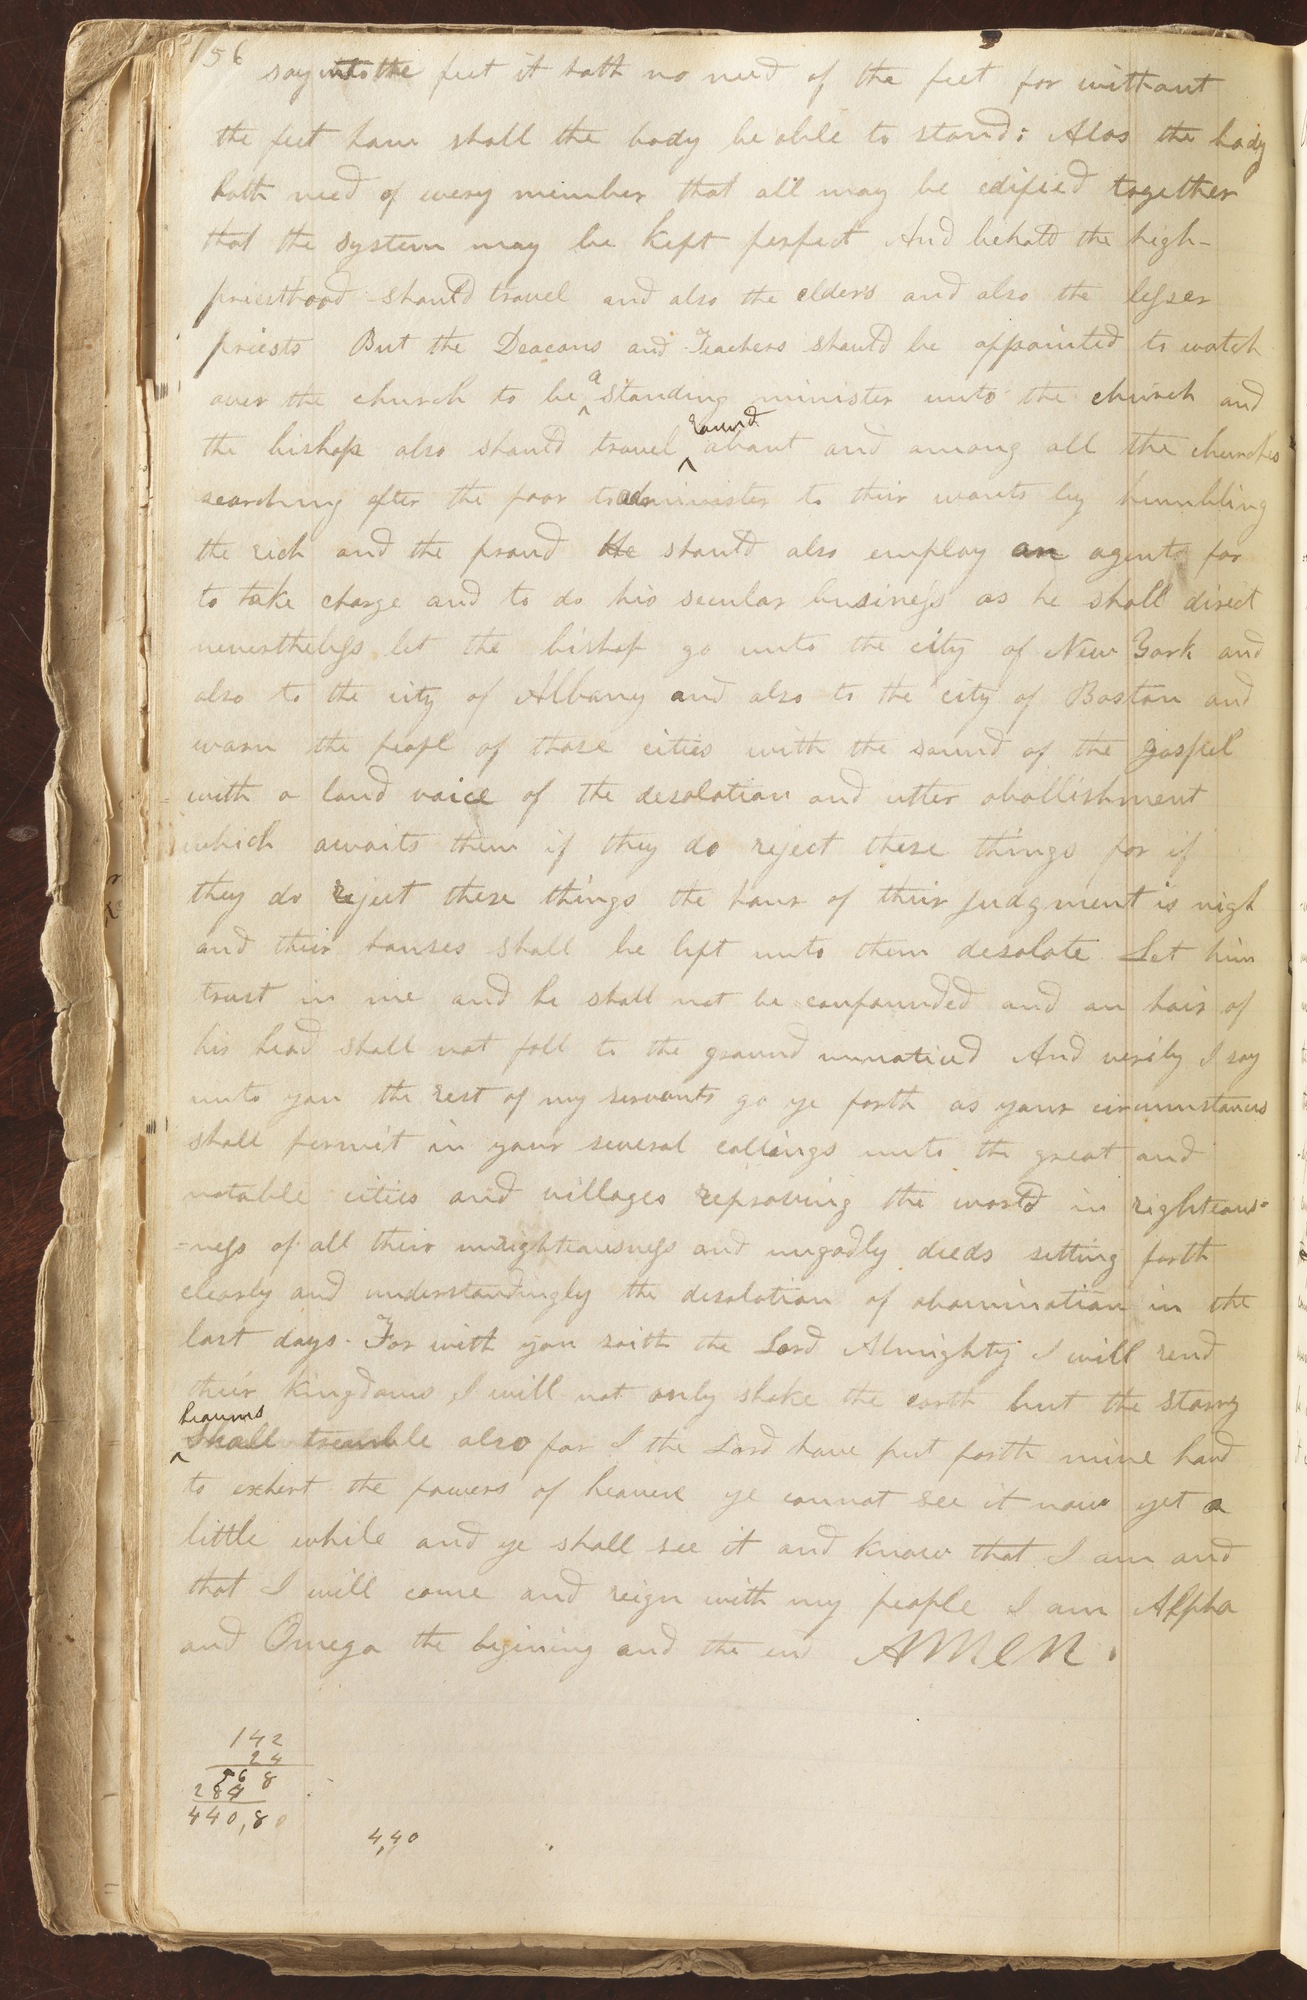 156
say unto the feet it hath no need of the feet for without
the feet how shall the body be able to stand: Alas the body
hath need of every member that all may be edified together
that the system may be kept perfect And behold the high-
priesthood should travel and also the elders and also the lesser
priests But the Deacons and Teachers should be appointed to watch
over the church to be a standing minister unto the church and
the bishop also should travel round about and among all the churches
searching after the poor to administer to their wants by humbling
the rich and the proud He should also employ an agent for
to take charge and to do his secular business as he shall direct
nevertheless let the bishop go unto the city of New York and
also to the city of Albany and also to the city of Boston and
warn the peopl of those cities with the sound of the gospel
with a loud voice of the desolation and utter abollishment
which awaits them if they do reject these things for if
they do reject these things the hour of their judgment is nigh
and their houses shall be left unto them desolate Let him
trust in me and he shall not be confounded and an hair of
his head shall not fall to the ground unnoticed And verily I say
unto you the rest of my servants go ye forth as your circumstances
shall permit in your several callings unto the great and
notable cities and villages reproving the world in righteous=
=ness of all their unrighteousness and ungodly deeds setting forth
clearly and understandingly the desolation of abomination in the
last days. For with you saith the Lord Almighty I will rend
their kingdoms I will not only shake the earth but the starry
heavens shall tremble also for I the Lord have put forth mine hand
to exhert the powers of heaven ye cannot see it now yet a
little while and ye shall see it and know that I am and
that I will come and reign with my people I am Alpha
and Omega the begining and the end AMEN.
142
24
568
284
440,80
4,40